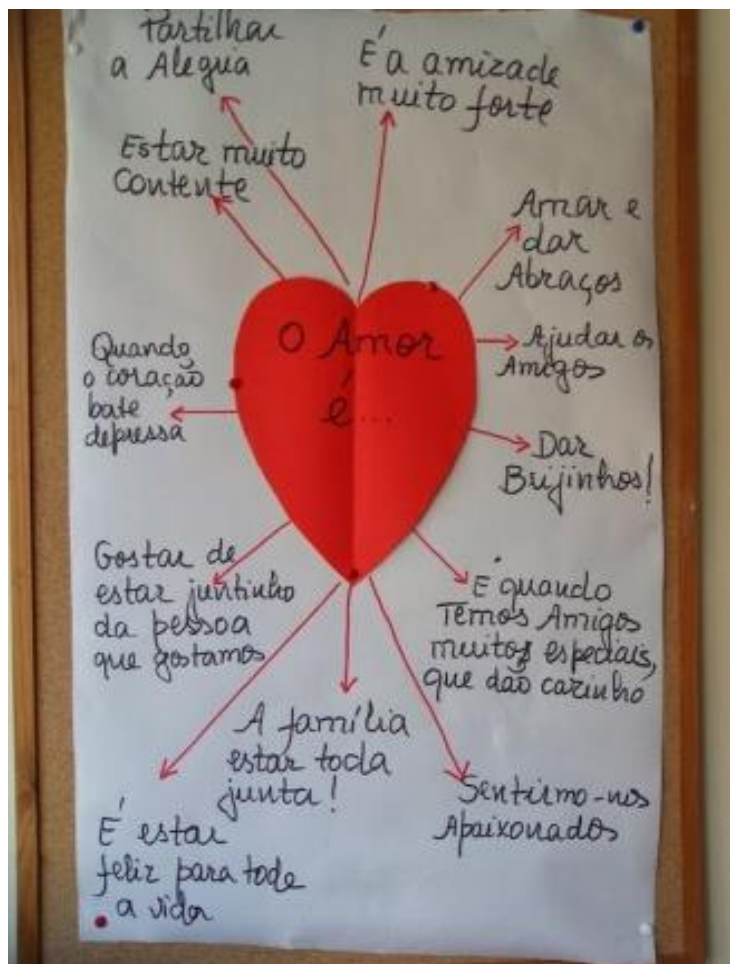 Partilhar
a Alegria
É a amizade
muito forte
Estar muito
Contente
Amar e
dar
Abraços
O Amor
é...
Ajudar os
Amigos
Quando
o coração
bate
depressa
Dar
Beijinhos!
Gostar de
estar juntinho
da pessoa
que gostamos
É quando
Temos Amigos
muitos especiais,
que dão carinho
A família
estar toda
junta!
Sentirmo-nos
Apaixonados
É estar
feliz para toda
a vida